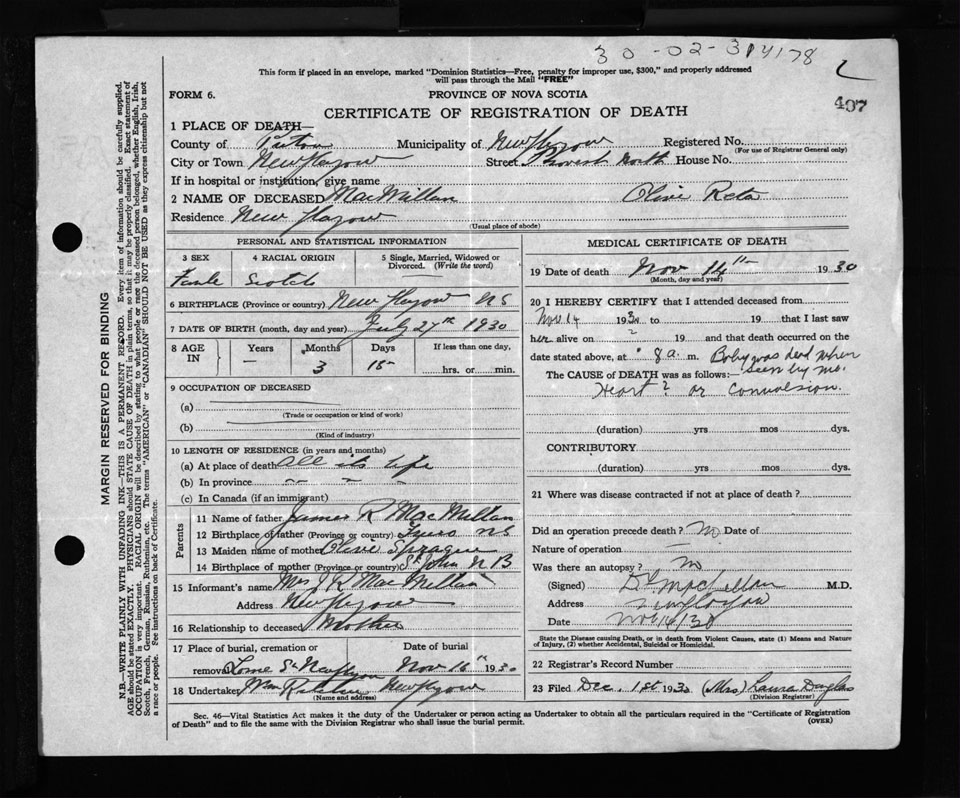 30-02-314178
This form if placed in an envelope, marked "Dominion Statistics—Free, penalty for improper use, $300," and properly addressed
will pass through the Mail "FREE"
407
FORM 6.
PROVINCE OF NOVA SCOTIA
CERTIFICATE OF REGISTRATION OF DEATH
1 PLACE OF DEATH—
County of Pictou Municipality of New Glasgow Registered No.
(For use of Registrar General only)
City or Town New Glasgow Street Provost North House No.
If in hospital or institution, give name
2 NAME OF DECEASED MacMillan Olive Reta
Residence New Glasgow
(Usual place of abode)
PERSONAL AND STATISTICAL INFORMATION
3 SEX 4 RACIAL ORIGIN 5 Single, Married, Widowed or Divorced. (Write the word)
Scotch
6 BIRTHPLACE (Province or country) New Glasgow NS
7 DATE OF BIRTH (month, day and year) July 27th 1930
8 AGE IN Years Months Days If less than one day,
— 3 15 hrs. or min.
9 OCCUPATION OF DECEASED
(a)
(Trade or occupation or kind of work)
(b)
(Kind of industry)
10 LENGTH OF RESIDENCE (in years and months)
(a) At place of death All its life
(b) In province
(c) In Canada (if an immigrant)
Parents
11 Name of father James R MacMillan
12 Birthplace of father (Province or country) NS
13 Maiden name of mother Olive Sprague
14 Birthplace of mother (Province or country) St John N B
15 Informant's name Mrs J R MacMillan
Address New Glasgow
16 Relationship to deceased Mother
17 Place of burial, cremation or removal Date of burial
Nov 16th 1930
18 Undertaker Wm New Glasgow
(Name and address)
MEDICAL CERTIFICATE OF DEATH
19 Date of death Nov 14th 1930
(Month, day and year)
20 I HEREBY CERTIFY that I attended deceased from
Nov 14 1930 to 19 that I last saw
her alive on ? 19 and that death occurred on the
date stated above, at 8 a. m. Baby was dead when
The CAUSE of DEATH was as follows:— seen by me.
Heart? or Convulsion.
(duration) yrs mos dys.
CONTRIBUTORY
(duration) yrs mos dys.
21 Where was disease contracted if not at place of death?
Did an operation precede death? No Date of
Nature of operation
Was there an autopsy? No
(Signed) M.D.
Address New Glasgow
Date Nov 16/30
State the Disease causing Death, or in death from Violent Causes, state (1) Means and Nature
of Injury, (2) whether Accidental, Suicidal or Homicidal.
22 Registrar's Record Number
23 Filed Dec. 1st 1930 (Mrs) Laura Douglas
(Division Registrar)
Sec. 46—Vital Statistics Act makes it the duty of the Undertaker or person acting as Undertaker to obtain all the particulars required in the "Certificate of Registration
of Death" and to file the same with the Division Registrar who shall issue the burial permit.
(OVER)
MARGIN RESERVED FOR BINDING
N.B.—WRITE PLAINLY WITH UNFADING INK—THIS IS A PERMANENT RECORD. Every item of information should be carefully supplied.
AGE should be stated EXACTLY. PHYSICIANS should STATE CAUSE OF DEATH in plain terms, so that it may be properly classified. Exact statement of
OCCUPATION is very important. RACIAL ORIGIN will be described by stating to what people or race the deceased person belonged, whether English, Irish,
Scotch, French, German, Russian, Ruthenian, etc. The terms "AMERICAN" or "CANADIAN" SHOULD NOT BE USED as they express citizenship but not
a race or people. See instructions on back of Certificate.